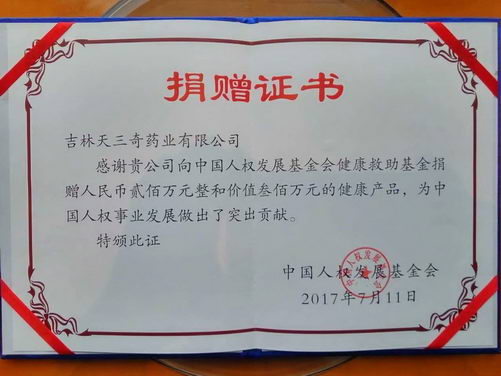 捐赠证书
吉林天三奇药业有限公司
感谢贵公司向中国人权发展基金会健康救助基金捐
赠人民币贰佰万元整和价值叁佰万元的健康产品，为中
国人权事业发展做出了突出贡献。
特颁此证
中国人权发展基金会
2017年7月11日